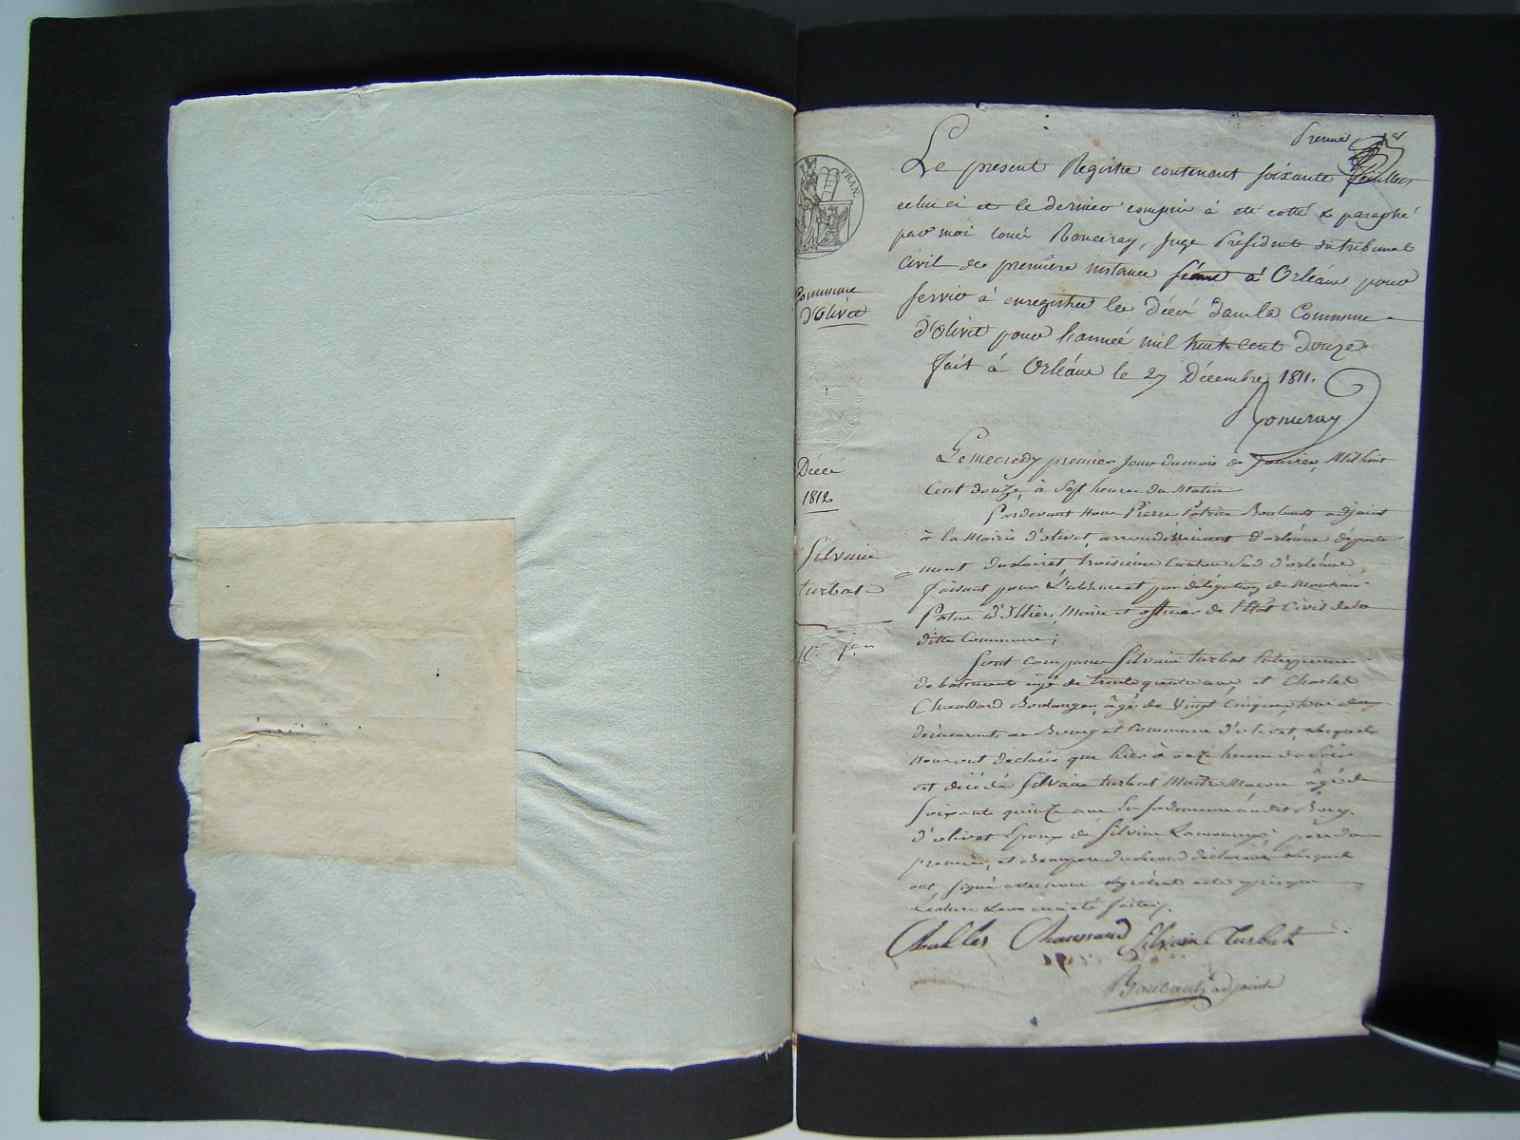 Premier
Le présent Registre contenant soixante feuillets
celui ci et le dernier compris à été cotté & paraphé
par moi Louis Ronceray, Juge Président du tribunal
Civil de première instance séant à Orléans pour
servir à enregistrer les Décès dans la Commune
d'Olivet pour l'année mil huit cent douze
fait à Orléans le 27 Décembre 1811.
Ronceray
FRAN.
Commune
d'Olivet
Décès
1812
Silvain
turbat
Le mecredy premier Jour du mois de Janvier Mil huit
Cent douze, à Sept heures du Matin
Pardevant Nous Pierre Patrice Boulault adjoint
à la Mairie d'olivet, arrondissement d'orléans départe
ment du Loiret, troisième Canton Sud d'orléans,
faisant pour l'absence et par délégation de Monsieur
Maire et officier de l'Etat Civil de la
ditte Commune;
Sont comparus Silvain turbat
de batiments âgé de trente quatre ans, et Charles
Boulanger, âgé de Vingt Cinq ans, tous deux
demeurants au Bourg et Commune d'olivet, lesquels
nous ont déclaré que hier à onze heures du Soir
est décédé Silvain turbat Maitre Maçon âgé de
Soixante quinze ans en sa demeure audit Bourg
d'olivet Epoux de Silvine père du
premier, et Beaupere du Second déclarant lesquels
ont signé avec nous le présent acte après que
lecture leur en a été faite
Charles Chaussard Silvain Turbat
Boulault adjoint